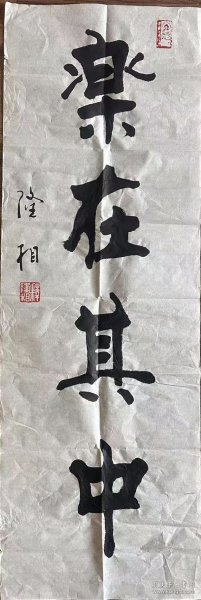 楽在其中
隆相